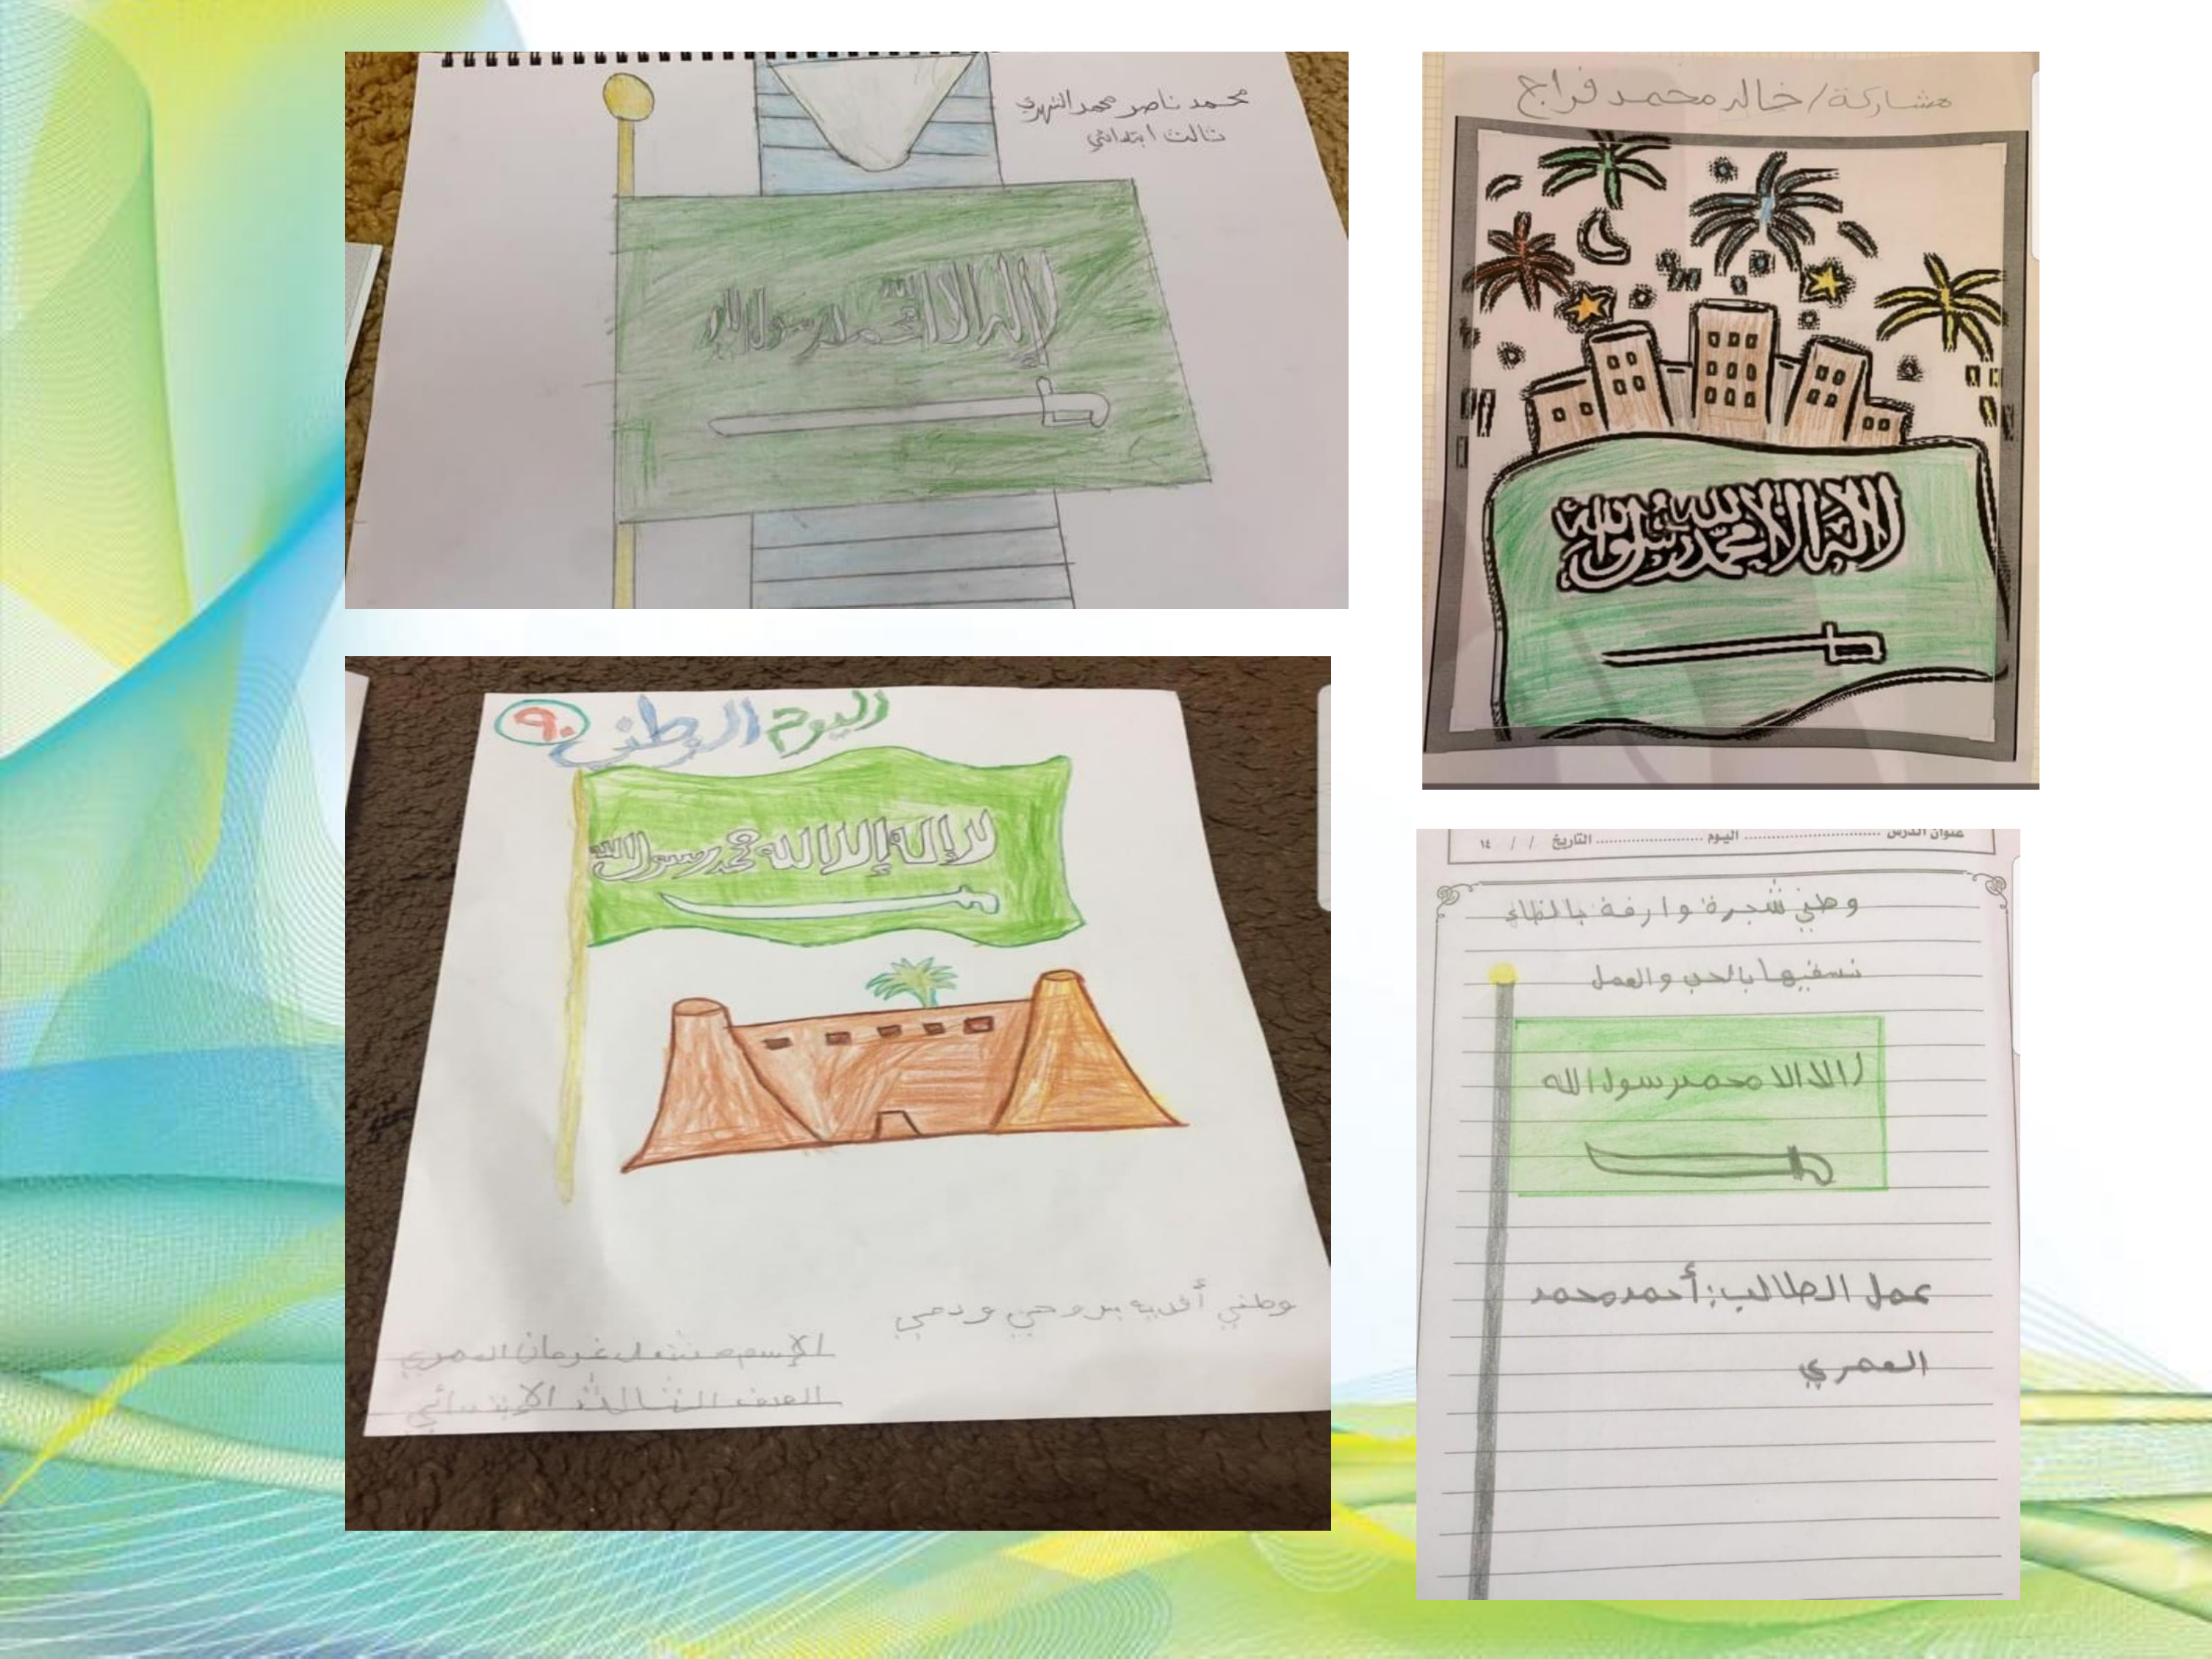 محمد ناصر محمد الشهري
ثالث ابتدائي
لا إله الا الله محمد رسول الله
مشاركة/خالد محمد فراج
لا إله إلا الله محمد رسول الله
اليوم الوطني ٩٠
لا إله إلا الله محمد رسول الله
وطني أفديه بروحي ودمي
الإسم مشعل غرمان العمري
الصف الثالث الإبتدائي
عنوان الدرس اليوم التاريخ / / ١٤
وطني شجرة وارفة بالظلال
نسقيها بالحب والعمل
محمد رسول الله
عمل الطالب: أحمد محمد
العمري